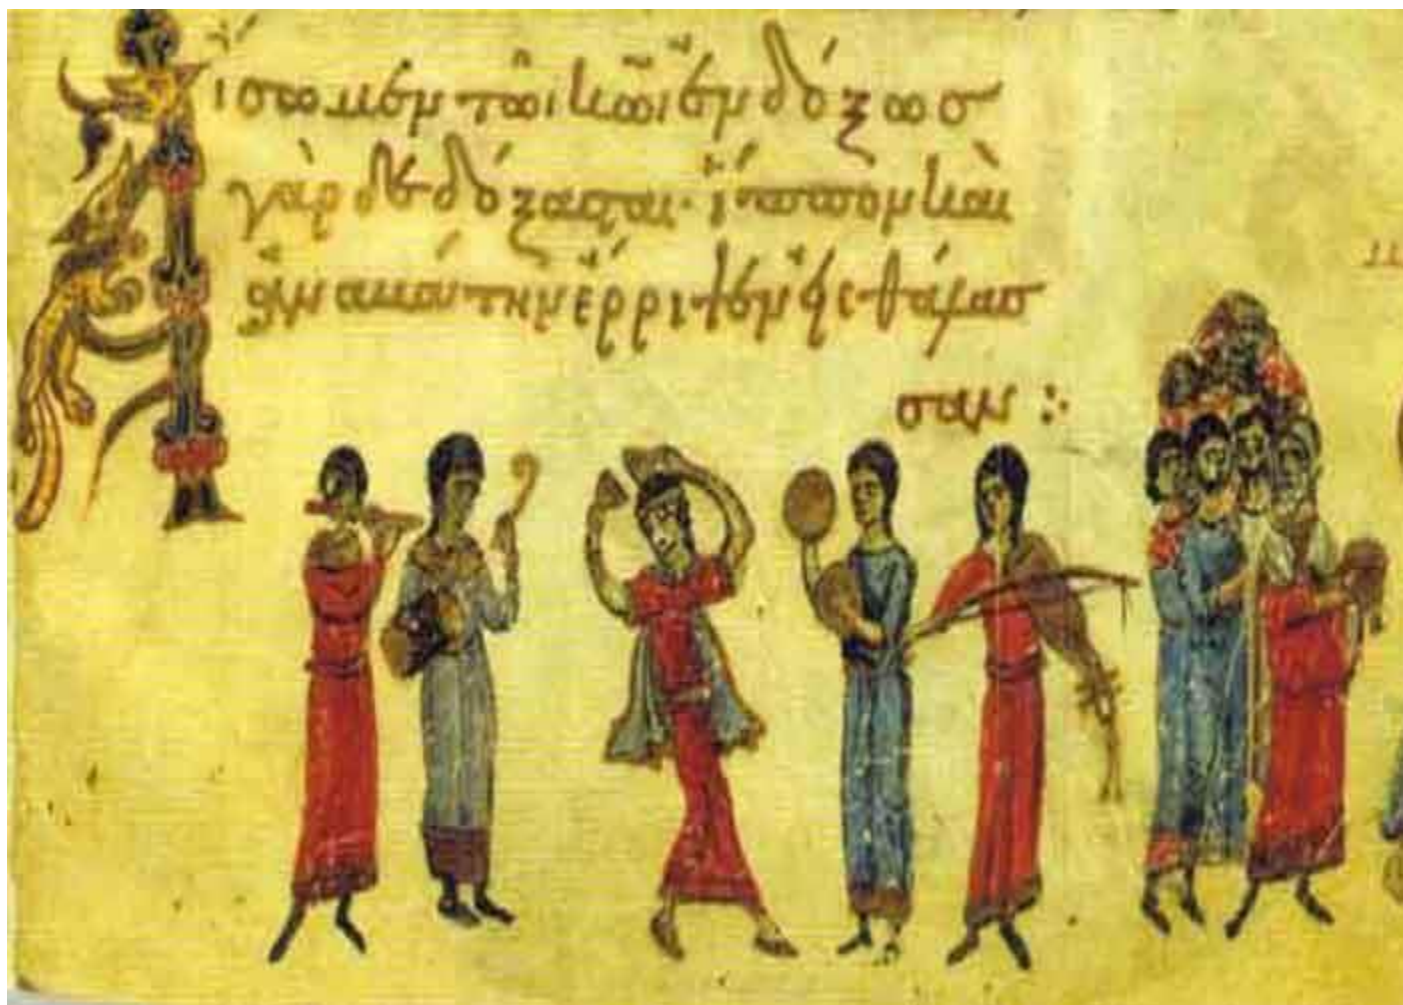 Ἄισωμεν τῶι κωι ἐνδόξωσ
γὰρ δεδόξασται· ἵππον και
ἀναβάτην ἔρριψεν εἰς θάλασ
σαν :